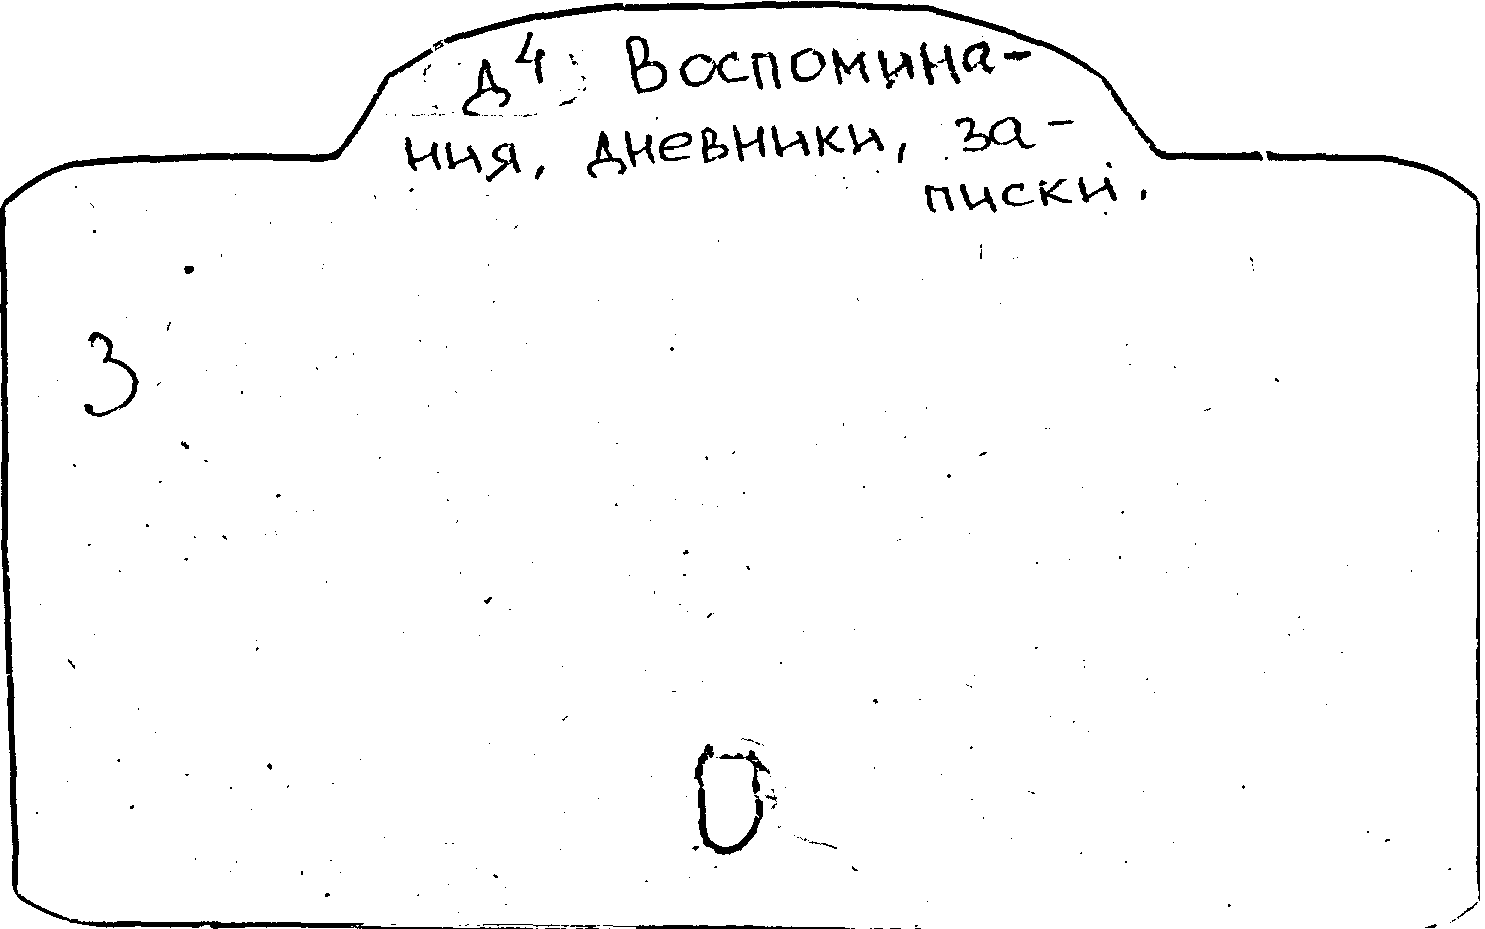 д4 Воспомина-
ния, дневники, за-
писки.
3